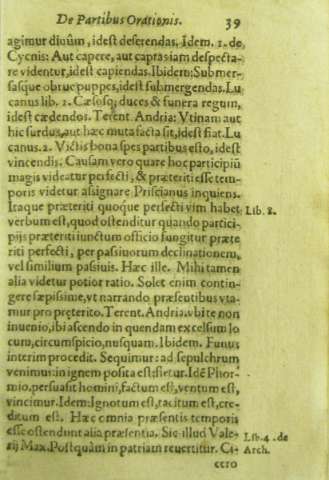 De Partibus Orationis. 39
agimur diuûm, idest deferendas. Idem. 1. de
Cycnis: Aut capere, aut captas iam despecta-
re videntur, idest capiendas. Ibidem: Submer-
sasque obrue puppes, idest submergendas. Lu
canus lib. 2. Cæsosq; duces & funera regum,
idest cædendos. Terent. Andria: Vtinam aut
hic surdus, aut hæc muta facta sit, idest fiat. Lu
canus. 2. Victis bona spes partibus esto, idest
vincendis. Causam vero quare hoc participiũ
magis videatur perfecti, & præteriti esse tem-
poris videtur assignare Priscianus inquiens.
Itaque præteriti quoque perfecti vim habet
verbum est, quod ostenditur quando partici-
pijs præteriti iunctum officio fungitur præte
riti perfecti, per passiuorum declinationem,
vel similium passiuis. Hæc ille. Mihi tamen
alia videtur potior ratio. Solet enim contin-
gere sæpissime, vt narrando præsentibus vta-
mur pro preterito. Terent. Andria. vbi te non
inuenio, ibi ascendo in quendam excelsum lo
cum, circumspicio, nusquam. Ibidem. Funus
interim procedit. Sequimur: ad sepulchrum
venimus: in ignem posita est: fletur. Idẽ Phor-
mio. persuasit homini, factum est, ventum est,
vincimur. Idem: Ignotum est, tacitum est, cre-
ditum est. Hæc omnia præsentis temporis
esse ostendunt alia præsentia. Sic illud Vale-
rij Max. Postquàm in patriam reuertitur. Ci-
cero
Lib. 8.
Lib. 4. de
Arch.